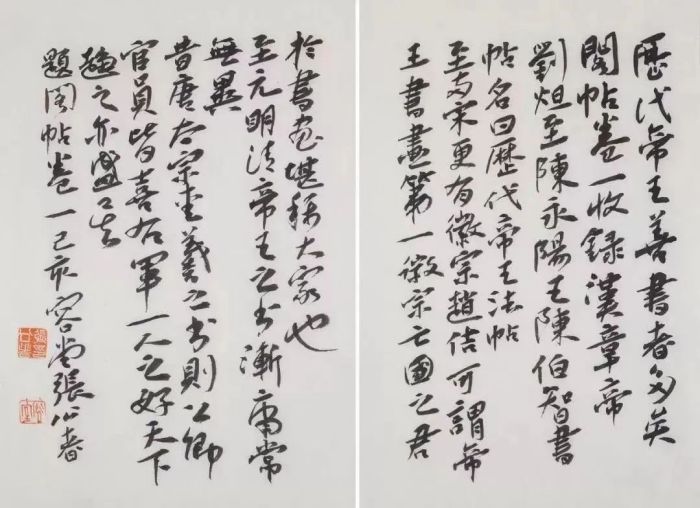 歷代帝王善書者多矣
閣帖卷一收錄漢章帝
劉炟至陳永陽王陳伯智書
帖名曰歷代帝王法帖
至兩宋更有徽宗趙佶可謂帝
王書畫第一徽宗亡國之君
於書畫堪稱大家也
至元明清帝王之書漸庸常
無異
昔唐太宗重羲之書則公卿
官員皆喜右軍一人之好天下
趨之亦盛之矣
題閣帖卷一己亥容堂張公者